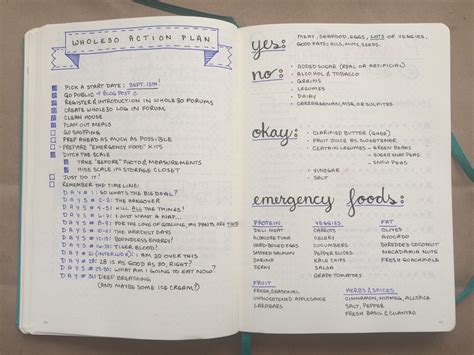 WHOLE30 ACTION PLAN
PICK A START DATE: SEPT. 13TH!
GO PUBLIC → BLOG POST
REGISTER & INTRODUCTION IN WHOLE30 FORUMS
CREATE WHOLE30 LOG IN FORUM
CLEAN HOUSE
PLAN OUT MEALS
GO SHOPPING
PREP AHEAD AS MUCH AS POSSIBLE
PREPARE "EMERGENCY FOOD" KITS
DITCH THE SCALE
TAKE "BEFORE" PHOTO & MEASUREMENTS
HIDE SCALE IN STORAGE CLOSET
JUST DO IT!
REMEMBER THE TIMELINE:
DAY #1: SO WHAT'S THE BIG DEAL?
DAYS # 2-3: THE HANGOVER
DAYS # 4-5: KILL ALL THE THINGS!
DAYS # 6-7: I JUST WANT A NAP...
DAYS # 8-9: FOR THE LOVE OF MY PANTS ARE
DAYS # 10-11: THE HARDEST DAYS
DAYS # 12-15: BOUNDLESS ENERGY!
DAYS # 16-27: TIGER BLOOD!
DAY # 21 (INTERLUDE): I AM SO OVER THIS
DAY # 28: 28 IS AS GOOD AS 30, RIGHT?
DAYS # 29-30: WHAT AM I GOING TO EAT NOW?
DAY # 31: DEEP BREATHING
(AND MAYBE SOME ICE CREAM!)
yes:
MEAT, SEAFOOD, EGGS, LOTS OF VEGGIES,
GOOD FATS: OILS, NUTS, SEEDS.
no:
• ADDED SUGAR (REAL OR ARTIFICIAL)
• ALCOHOL & TOBACCO
• GRAINS
• LEGUMES
• DAIRY
• CARRAGEENAN, MSG OR SULFITES
okay:
• CLARIFIED BUTTER (GHEE)
• FRUIT JUICE AS SWEETENER
• CERTAIN LEGUMES - GREEN BEANS
- SUGAR SNAP PEAS
- SNOW PEAS
• VINEGAR
• SALT
emergency foods:
PROTEIN
DELI MEAT
ALBACORE TUNA
HARD-BOILED EGGS
SMOKED SALMON
SHRIMP
JERKY
VEGGIES
CARROTS
CELERY
CUCUMBERS
PEPPER SLICES
KALE CHIPS
SALSA
GRAPE TOMATOES
FAT
OLIVES
AVOCADO
SHREDDED COCONUT
MACADAMIA NUTS
FRESH GUACAMOLE
FRUIT
FRESH, SEASONAL
UNSWEETENED APPLESAUCE
LARABARS
HERBS & SPICES
CINNAMON, NUTMEG, ALLSPICE
SALT, PEPPER
FRESH BASIL & CILANTRO